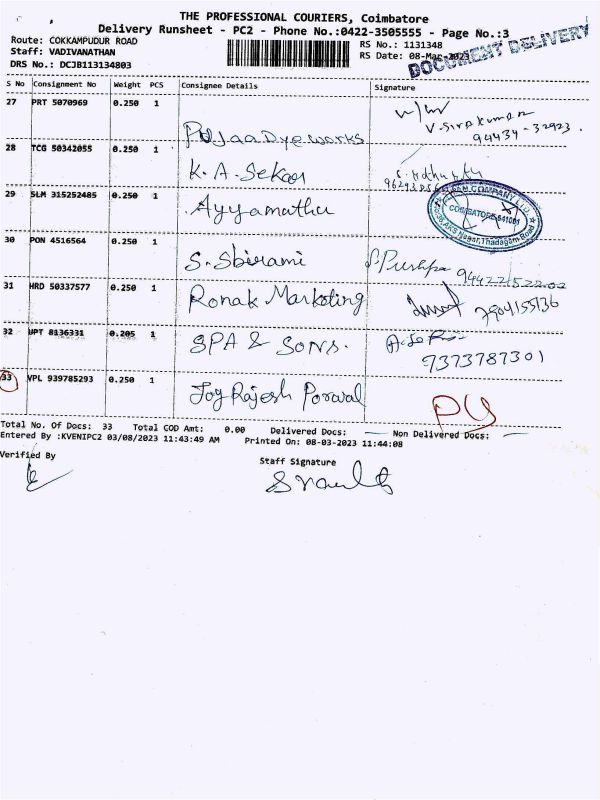 THE PROFESSIONAL COURIERS, Coimbatore
Delivery Runsheet - PC2 - Phone No.:0422-3505555 - Page No.:3
Route: COKKAMPUDUR ROAD
RS No.: 1131348
Staff: VADIVANATHAN
RS Date: 08-Mar-2023
DRS No.: DCJB113134803
DOCUMENT DELIVERY
S No Consignment No Weight PCS Consignee Details Signature
27 PRT 5070969 0.250 1
Poojaa Dye works
V. Sivakumar
94434-32923
28 TCG 50342055 0.250 1
K. A. Sekar
29 SLM 315252485 0.250 1
Ayyamathu
COIMBATORE-641001
Nagar, Thadagam Road
30 PON 4516564 0.250 1
S. Sbirami
S. Pushpa
31 HRD 50337577 0.250 1
Ronak Marketing
7904155136
32 UPT 8136331 0.205 1
SPA & SONS.
9373787301
33 VPL 939785293 0.250 1
Joy Rajesh Porwal
PU
Total No. Of Docs: 33 Total COD Amt: 0.00 Delivered Docs: Non Delivered Docs:
Entered By :KVENIPC2 03/08/2023 11:43:49 AM Printed On: 08-03-2023 11:44:08
Verified By
Staff Signature